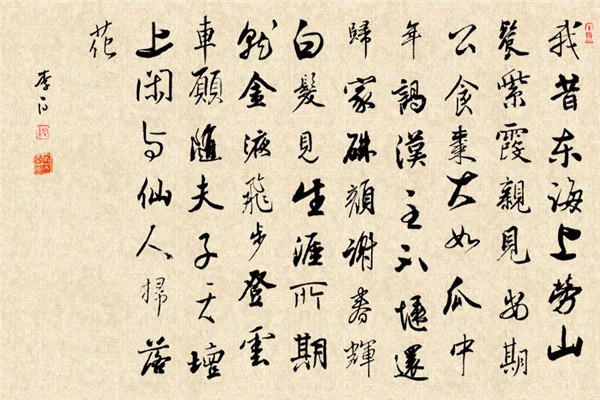 我昔东海上勞山
餐紫霞親見安期
公食棗大如瓜中
年謁漢主不愜還
歸家硃顏謝春輝
白髮見生涯所期
就金液飛步登雲
車願隨夫子天壇
上闲与仙人掃落
花
李白